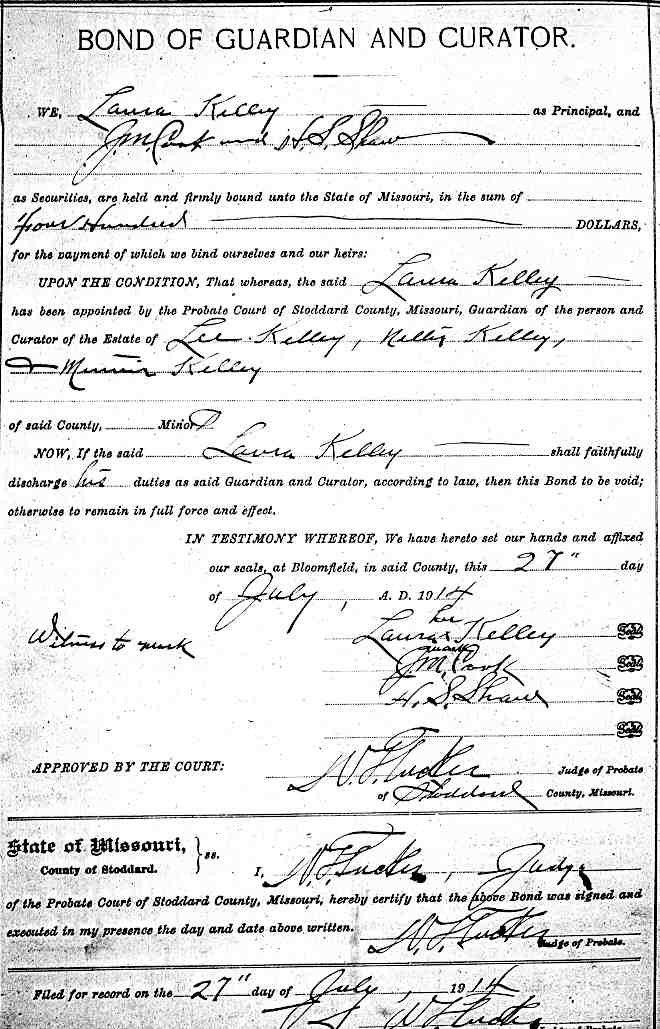 BOND OF GUARDIAN AND CURATOR.
WE, Laura Kelley as Principal, and
J.M. Cook and H.S. Shaw
as Securities, are held and firmly bound unto the State of Missouri, in the sum of
Four Hundred DOLLARS,
for the payment of which we bind ourselves and our heirs:
UPON THE CONDITION, That whereas, the said Laura Kelley
has been appointed by the Probate Court of Stoddard County, Missouri, Guardian of the person and
Curator of the Estate of Lee Kelley, Nettie Kelley,
& Minnie Kelley
of said County, Minors
NOW, If the said Laura Kelley shall faithfully
discharge his duties as said Guardian and Curator, according to law, then this Bond to be void;
otherwise to remain in full force and effect.
IN TESTIMONY WHEREOF, We have hereto set our hands and affixed
our seals, at Bloomfield, in said County, this 27" day
of July, A. D. 1914
her
Witness to mark Laura x Kelley Seal
mark
J.M. Cook Seal
H. S. Shaw Seal
Seal
APPROVED BY THE COURT: W F Tucker Judge of Probate
of Stoddard County, Missouri.
State of Missouri,
County of Stoddard. } ss. I, W F Tucker, Judge
of the Probate Court of Stoddard County, Missouri, hereby certify that the above Bond was signed and
executed in my presence the day and date above written. W F Tucker
Judge of Probate.
Filed for record on the 27" day of July, 1914
W F Tucker